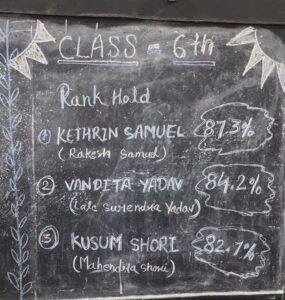 CLASS = 6th
Rank Hold
① KETHRIN SAMUEL 87.3%
(Rakesh Samuel)
② VANDITA YADAV 84.2%
(Lala Surendra Yadav)
③ KUSUM SHORI 82.1%
(Mahendra Shori)